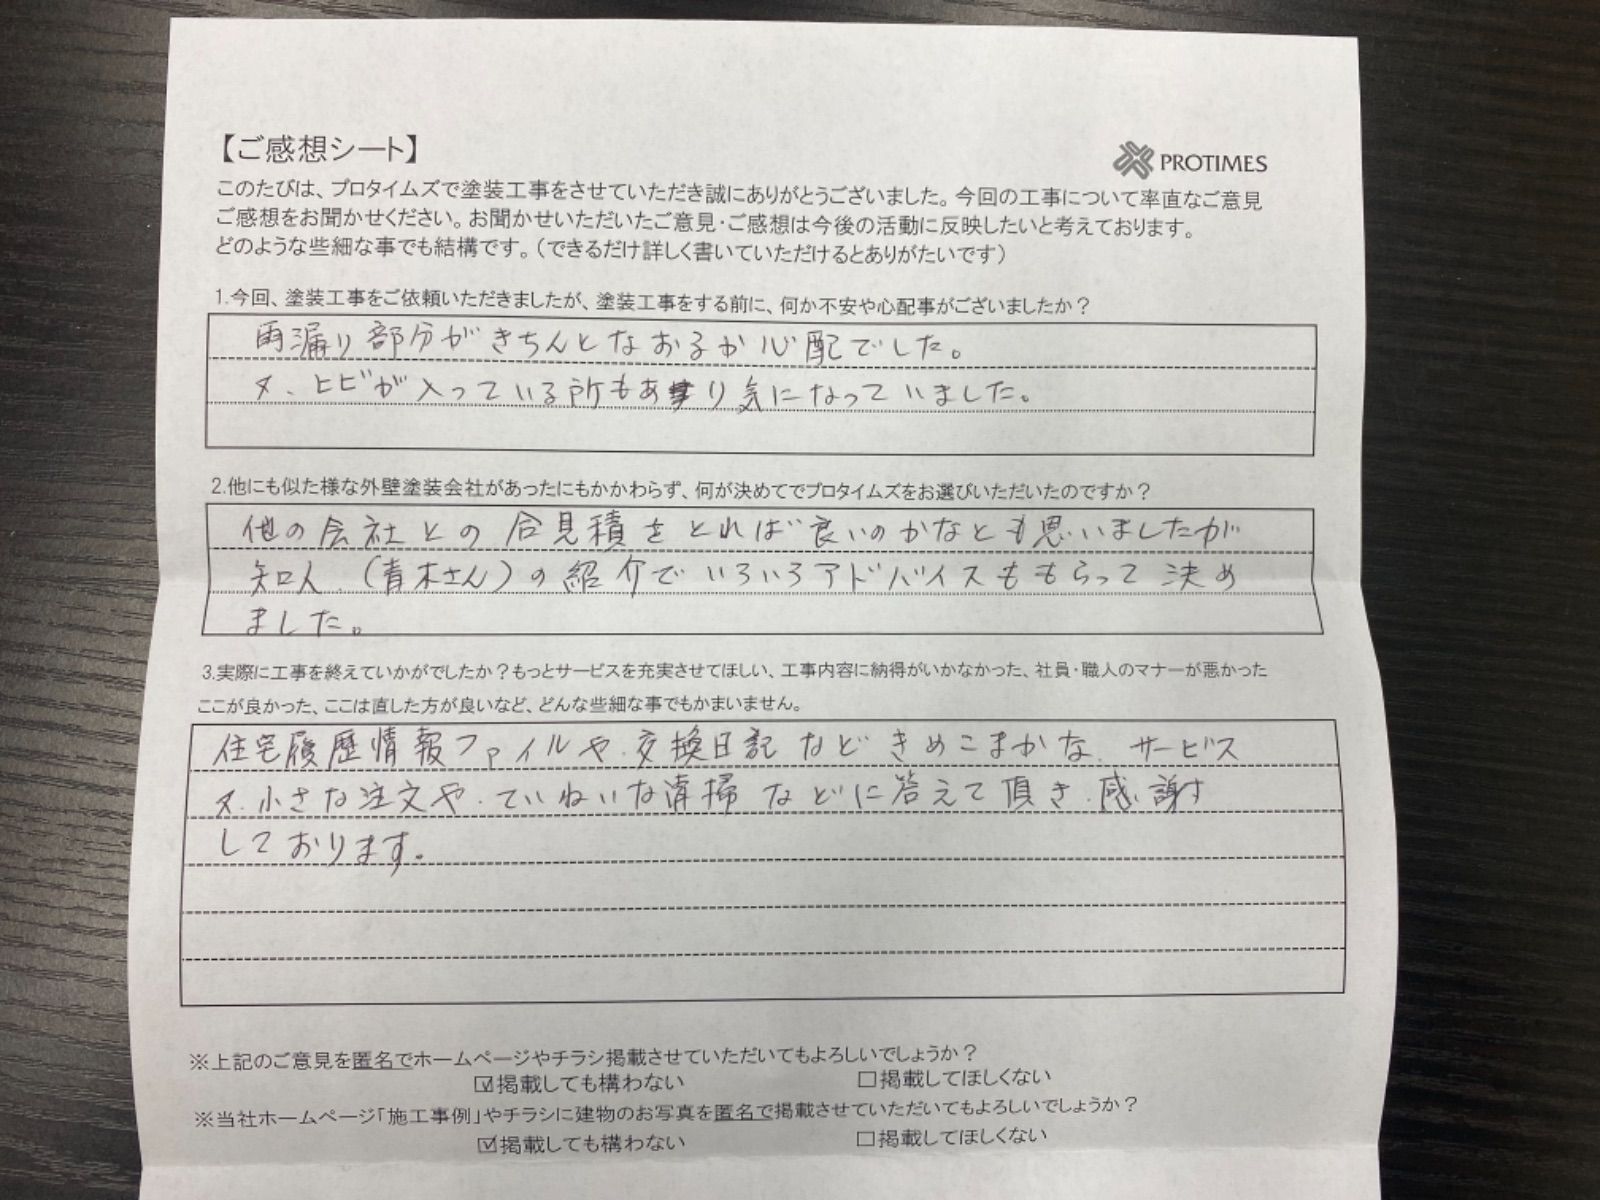 【ご感想シート】
PROTIMES
このたびは、プロタイムズで塗装工事をさせていただき誠にありがとうございました。今回の工事について率直なご意見
ご感想をお聞かせください。お聞かせいただいたご意見・ご感想は今後の活動に反映したいと考えております。
どのような些細な事でも結構です。(できるだけ詳しく書いていただけるとありがたいです)
1.今回、塗装工事をご依頼いただきましたが、塗装工事をする前に、何か不安や心配事がございましたか?
雨漏り部分がきちんとなおるか心配でした。
又、ヒビが入っている所もあり気になっていました。
2.他にも似た様な外壁塗装会社があったにもかかわらず、何が決めてでプロタイムズをお選びいただいたのですか?
他の会社との合見積をとれば良いのかなとも思いましたが
知人、(青木さん)の紹介でいろいろアドバイスももらって決め
ました。
3.実際に工事を終えていかがでしたか?もっとサービスを充実させてほしい、工事内容に納得がいかなかった、社員・職人のマナーが悪かった
ここが良かった、ここは直した方が良いなど、どんな些細な事でもかまいません。
住宅履歴情報ファイルや、交換日記などきめこまかな、サービス
又、小さな注文や、ていねいな清掃などに答えて頂き、感謝す
しております。
※上記のご意見を匿名でホームページやチラシ掲載させていただいてもよろしいでしょうか?
☑掲載しても構わない □掲載してほしくない
※当社ホームページ「施工事例」やチラシに建物のお写真を匿名で掲載させていただいてもよろしいでしょうか?
☑掲載しても構わない □掲載してほしくない